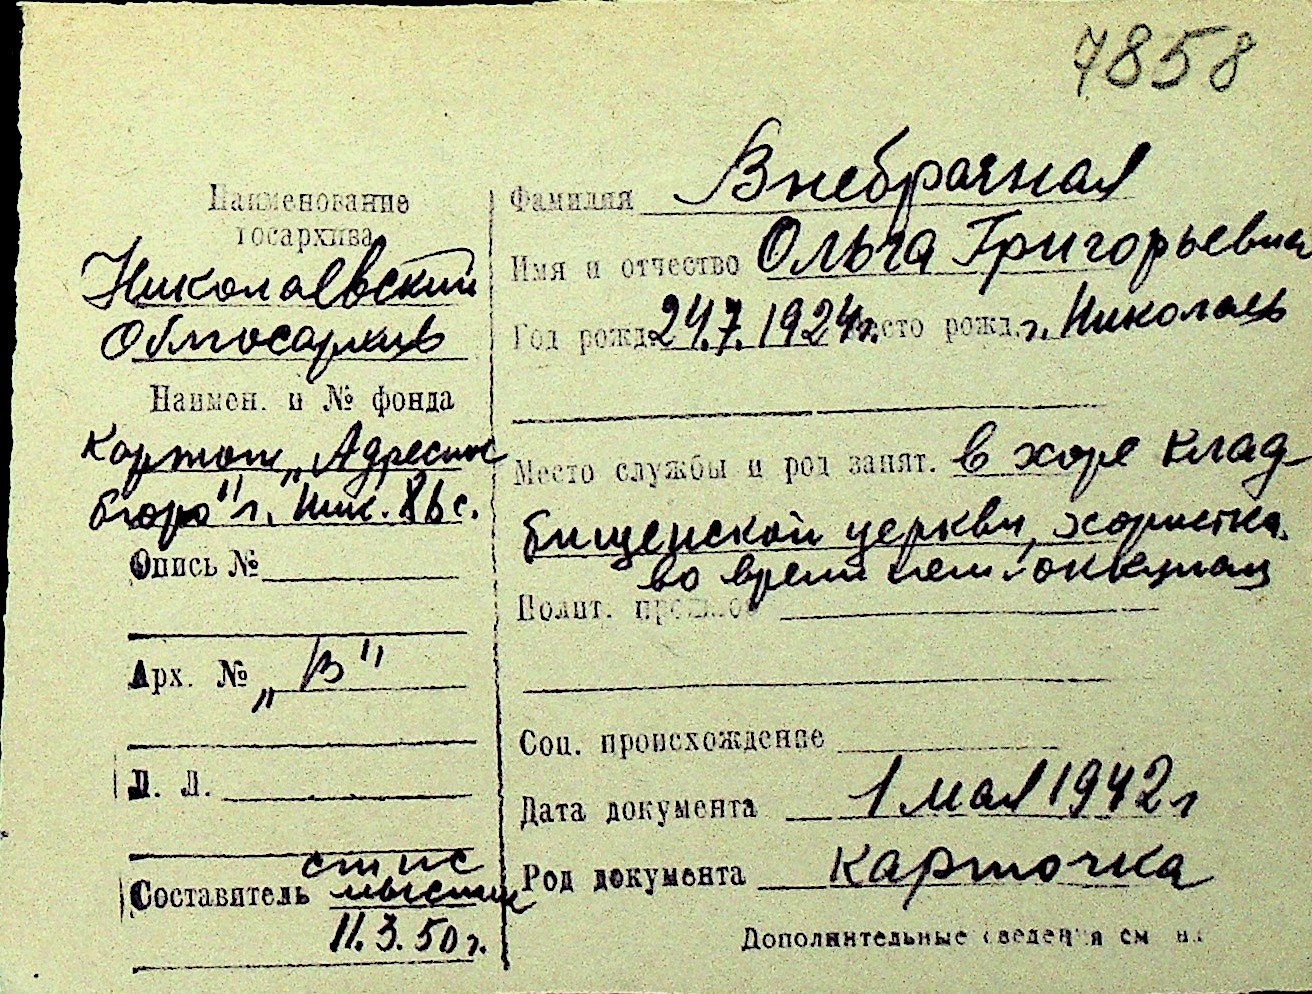 7858
Наименование
госархива
Николаевский
Облгосархив
Наимен. и № фонда
Картот. „Адресное
бюро" г. Ник.
Опись №
Арх. № „В"
Л. Л.
Составитель
11.3.50 г.
Фамилия Внебрачная
Имя и отчество Ольга Григорьевна
Год рожд. 24.7.1924г. Место рожд. г. Николаев
Место службы и род занят. в хоре клад-
бищенской церкви, хористка
во время нем. оккупации
Полит. прошлое
Соц. происхождение
Дата документа 1 мая 1942 г
Род документа карточка
Дополнительные сведения см на